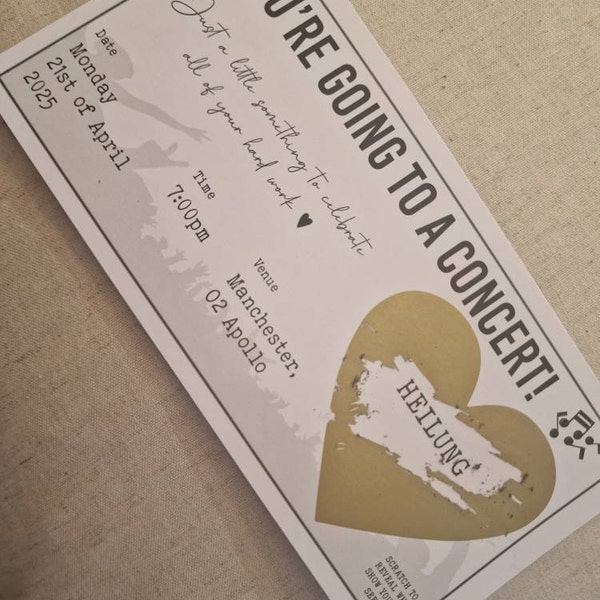 U'RE GOING TO A CONCERT!
Just a little something to celebrate
all of your hard work
Date
Monday
21st of April
2025
Time
7:00pm
Venue
Manchester,
O2 Apollo
HEILUNG
SCRATCH TO
REVEAL
SHOW